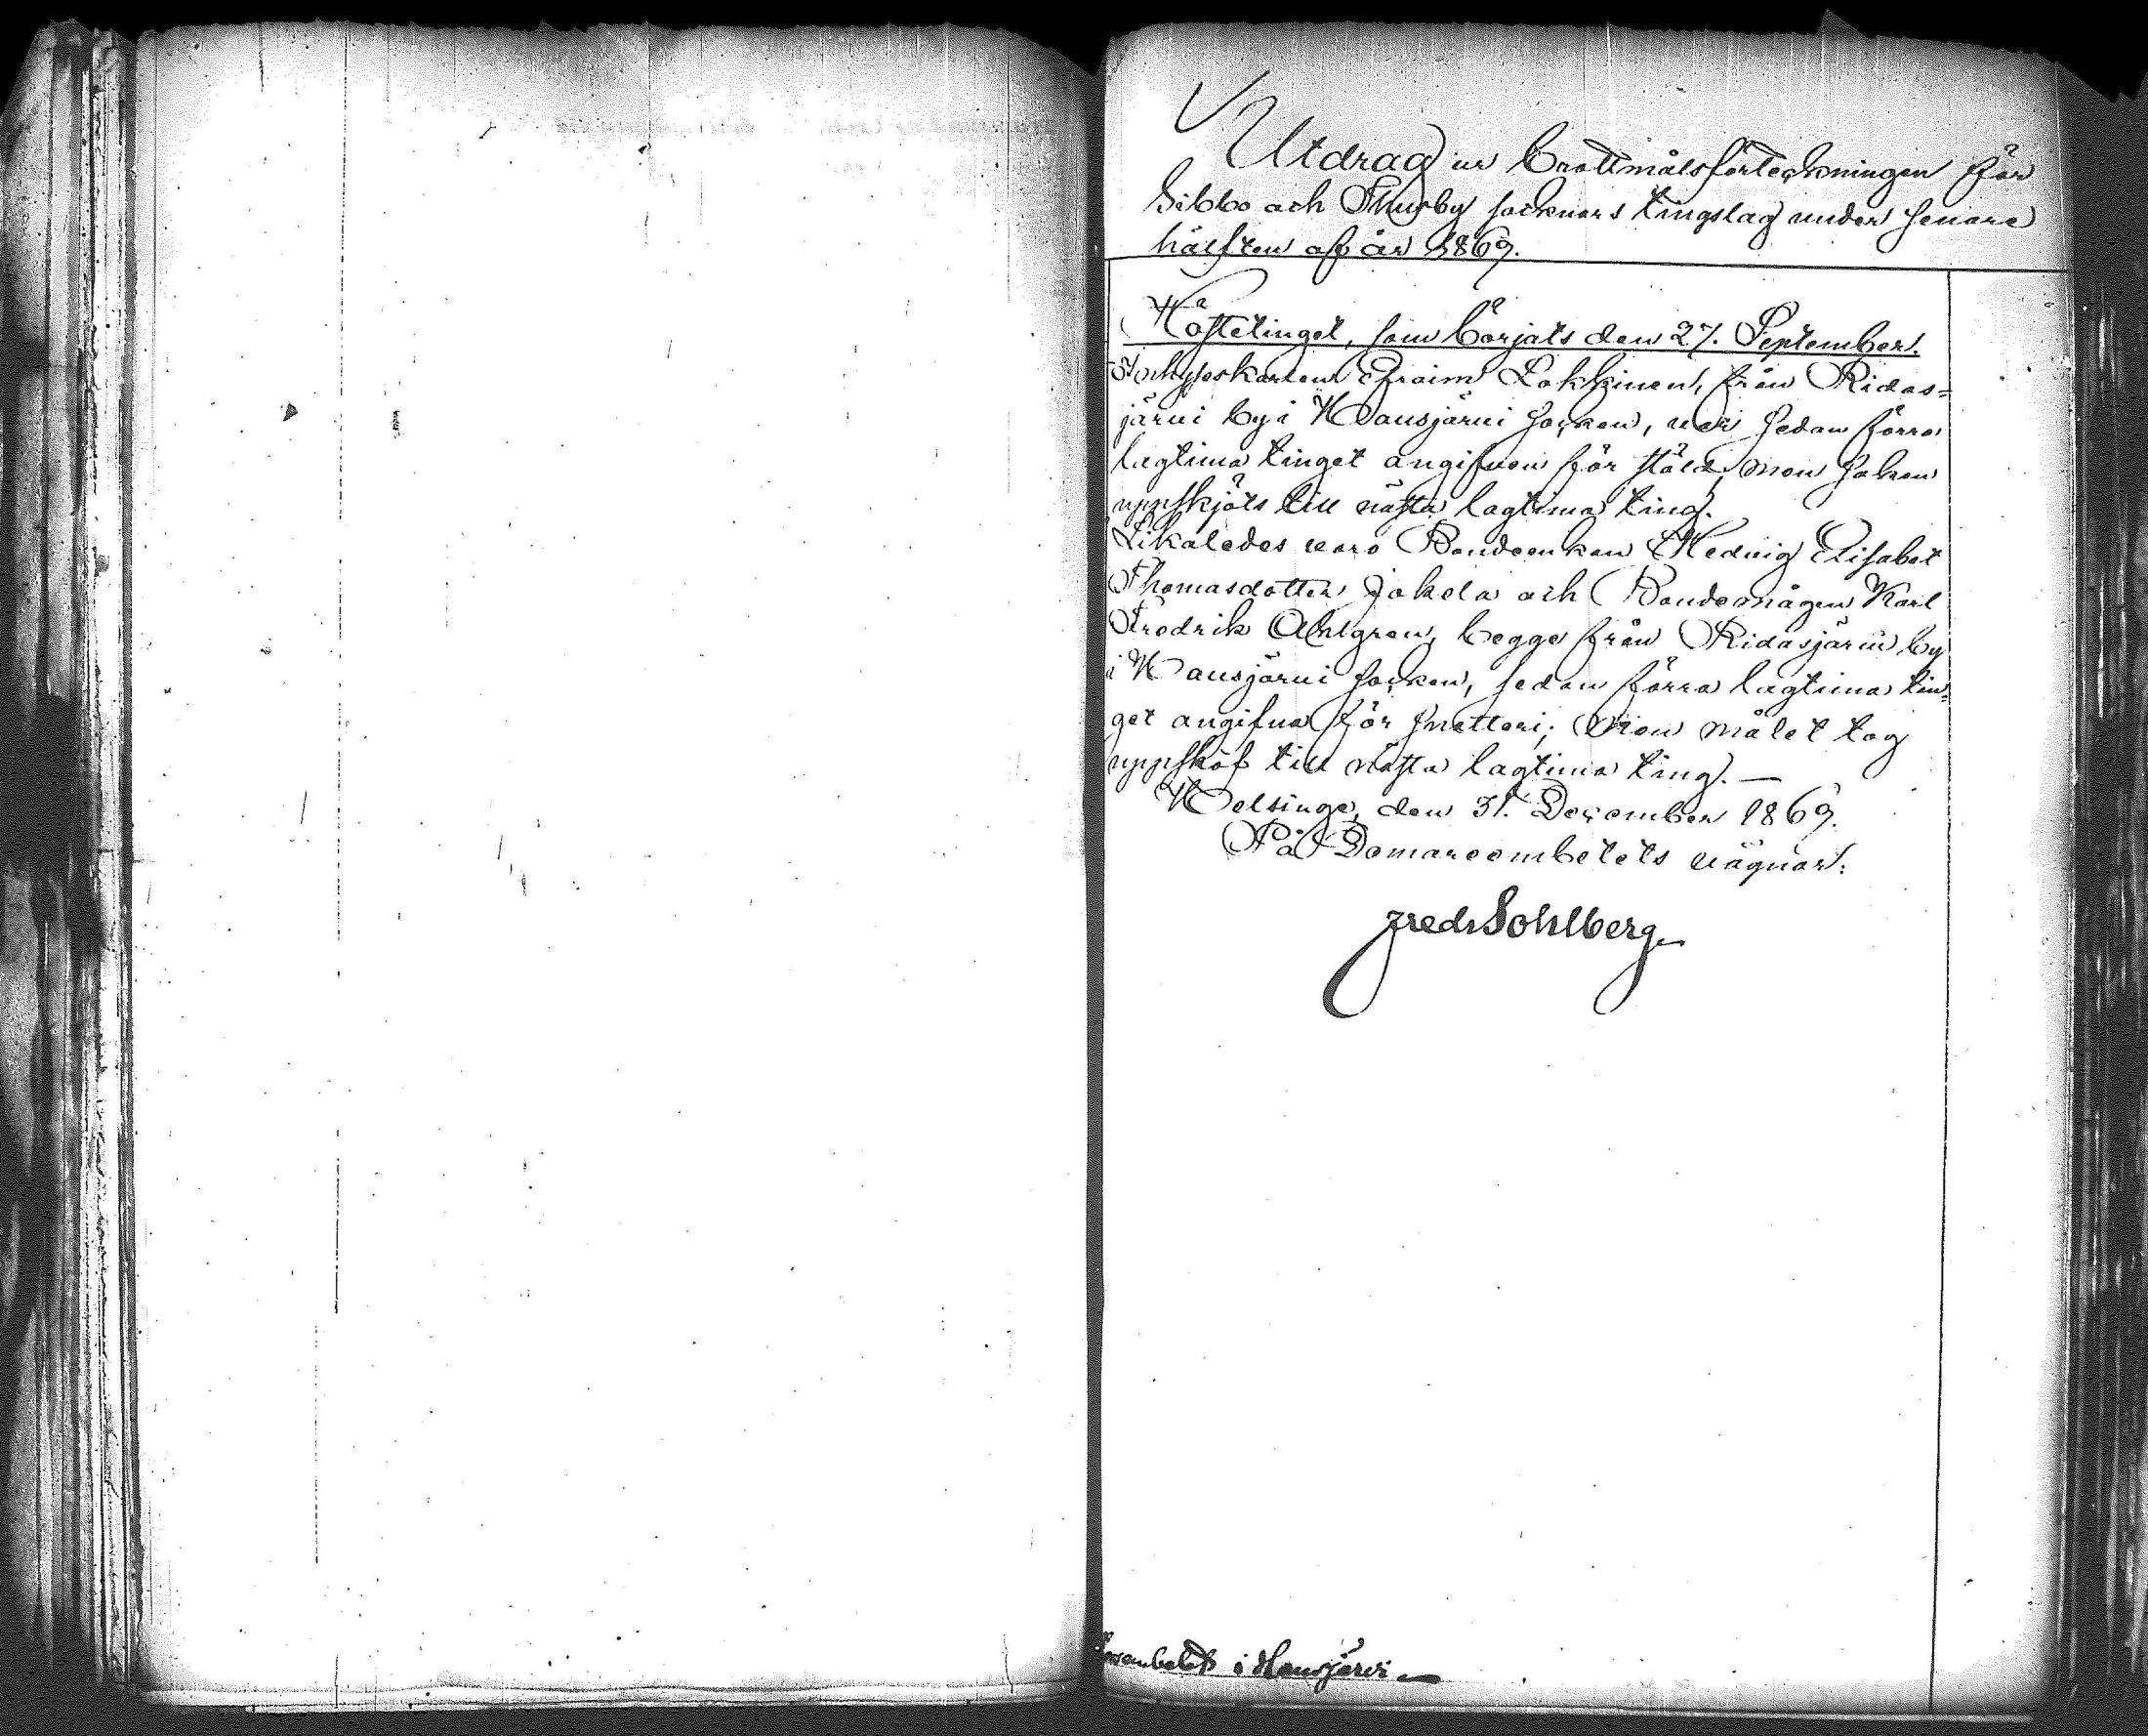 Utdrag ur Brottmålsförteckningen för
Sibbo och Thusby socknars tingslag under senare
hälften af år 1869.
Höstetinget, som börjats den 27. September.
Inhyseskarlen Efraim Lokkinen, från Ridas=
järvi by i Hausjärvi socken, var sedan förra
lagtima tinget angifven för stöld, men saken
uppskjöts till nästa lagtima ting.
Likaledes voro Bondeenkan Hedvig Elisabet
Thomasdotter Jokela och Bondemågen Karl
Fredrik Ahlgren, begge från Ridasjärvi by
i Hausjärvi socken, sedan förra lagtima tin=
get angifna för snatteri; men målet tog
uppskof till nästa lagtima ting. —
Helsinge, den 31. December 1869.
På Domareembetets vägnar:
Fredr Sohlberg
i Hausjärvi —